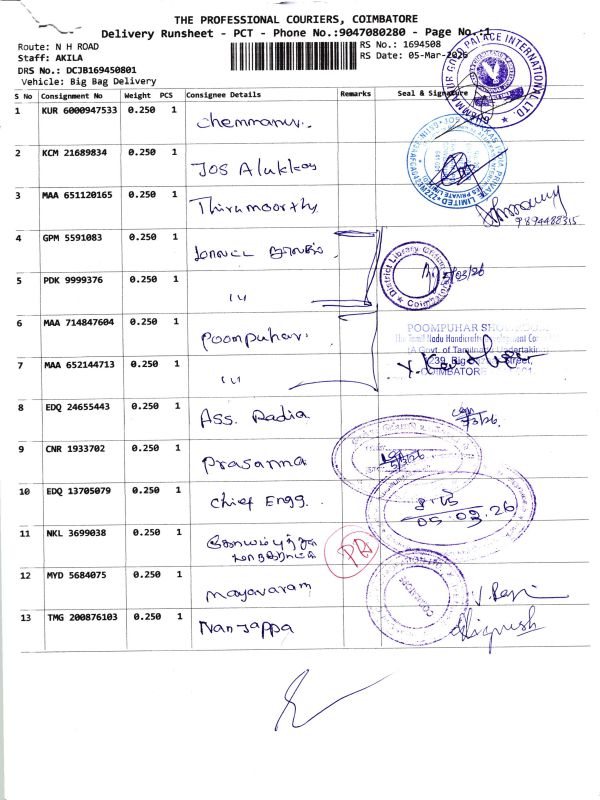 THE PROFESSIONAL COURIERS, COIMBATORE
Delivery Runsheet - PCT - Phone No.:9047080280 - Page No.:1
Route: N H ROAD
Staff: AKILA
RS No.: 1694508
RS Date: 05-Mar-2026
DRS No.: DCJB169450801
Vehicle: Big Bag Delivery
S No Consignment No Weight PCS Consignee Details Remarks Seal & Signature
1 KUR 6000947533 0.250 1 Chemmanur.
2 KCM 21689834 0.250 1 Jos Alukkas
3 MAA 651120165 0.250 1 Thirumoorthy
9894488315
4 GPM 5591083 0.250 1 மாவட்ட
District Library
Coimbatore
5 PDK 9999376 0.250 1 ''
6 MAA 714847604 0.250 1 Poompuhar.
POOMPUHAR SHOWROOM
The Tamil Nadu Handicrafts Development
(A Govt. of Tamilnadu Undertaking)
Street,
COIMBATORE
7 MAA 652144713 0.250 1 ''
8 EDQ 24655443 0.250 1 Ass. Radia
5/3/26.
9 CNR 1933702 0.250 1 Prasanna
5/3/26
10 EDQ 13705079 0.250 1 Chief Engg.
05.03.26
11 NKL 3699038 0.250 1
12 MYD 5684075 0.250 1 Mayavaram
COIMBATORE
13 TMG 200876103 0.250 1 Nanjappa